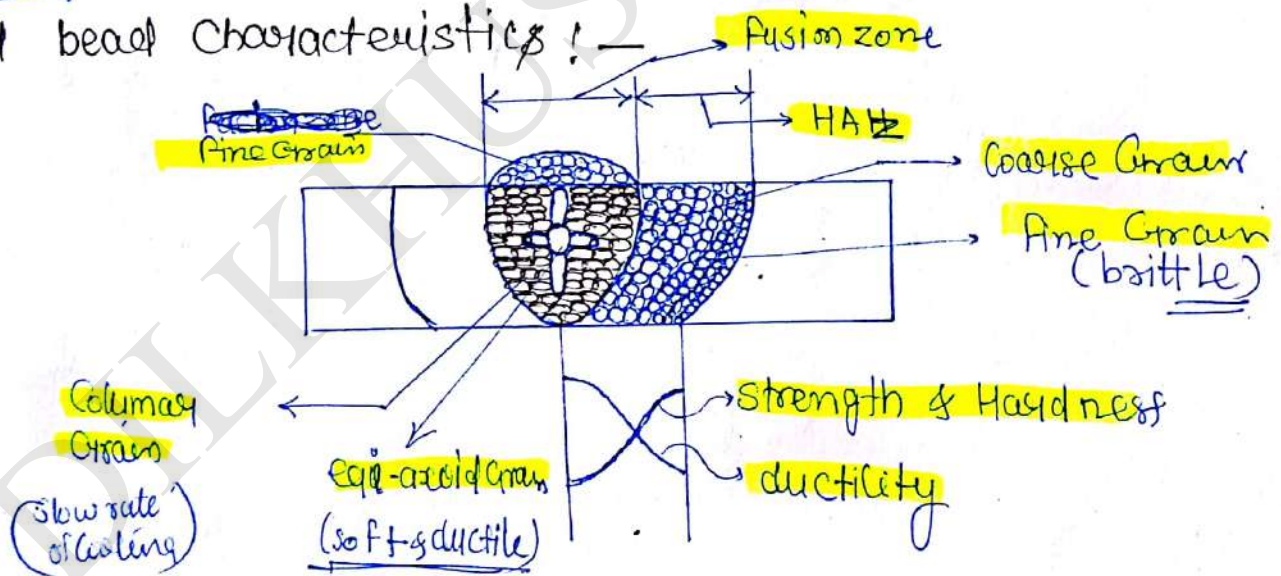 bead Characteristics :—
Fusion zone
Fine Grain
HAZ
Coarse Grain
Fine Grain
(brittle)
Columar
Grain
(slow rate
of cooling)
eqi-axoid Grain
(soft & ductile)
Strength & Hardness
ductility
DILKHUS